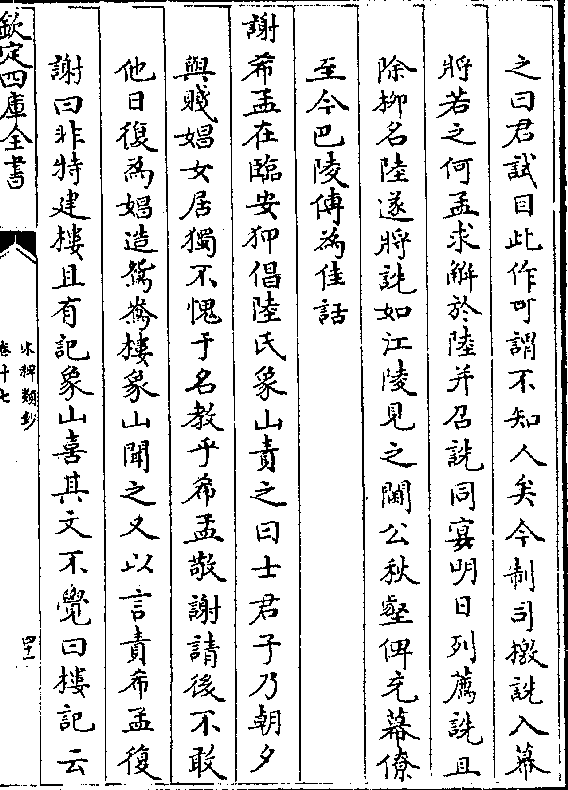 之曰君試目此作可謂不知人矣今制司檄詵入幕
將若之何孟求解於陸并召詵同宴明日列薦詵且
除柳名陸遂將詵如江陵見之閫公秋壑俾充幕僚
至今巴陵傳為佳話
謝希孟在臨安狎倡陸氏象山責之曰士君子乃朝夕
與賤娼女居獨不愧于名教乎希孟敬謝請後不敢
他日復為娼造鴛鴦樓象山聞之又以言責希孟復
謝曰非特建樓且有記象山喜其文不覺曰樓記云
欽定四庫全書
卷十七